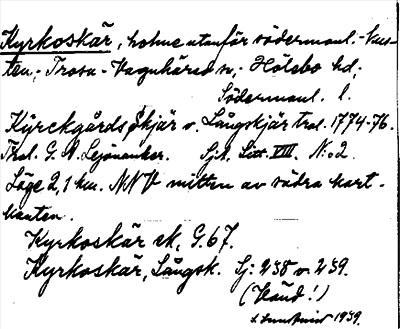 Kyrkoskär, holme utanför södermanl.-kus-
ten,- Trosa-Vagnhärad sn,- Hölebo hd.
Södermanl. l.
Kÿrckgårds skjär v. Långskjär trol. 1774-76.
Thol. G. A. Lejonanker. Sjk. Litt. VIII. N:o 2.
Läge 2,1 km. NNV mitten av södra kart-
kanten.
Kyrkoskär ek, G. 67.
Kyrkoskär, Långsk. Sj: 238 v. 239.
(Känd!)
1939.